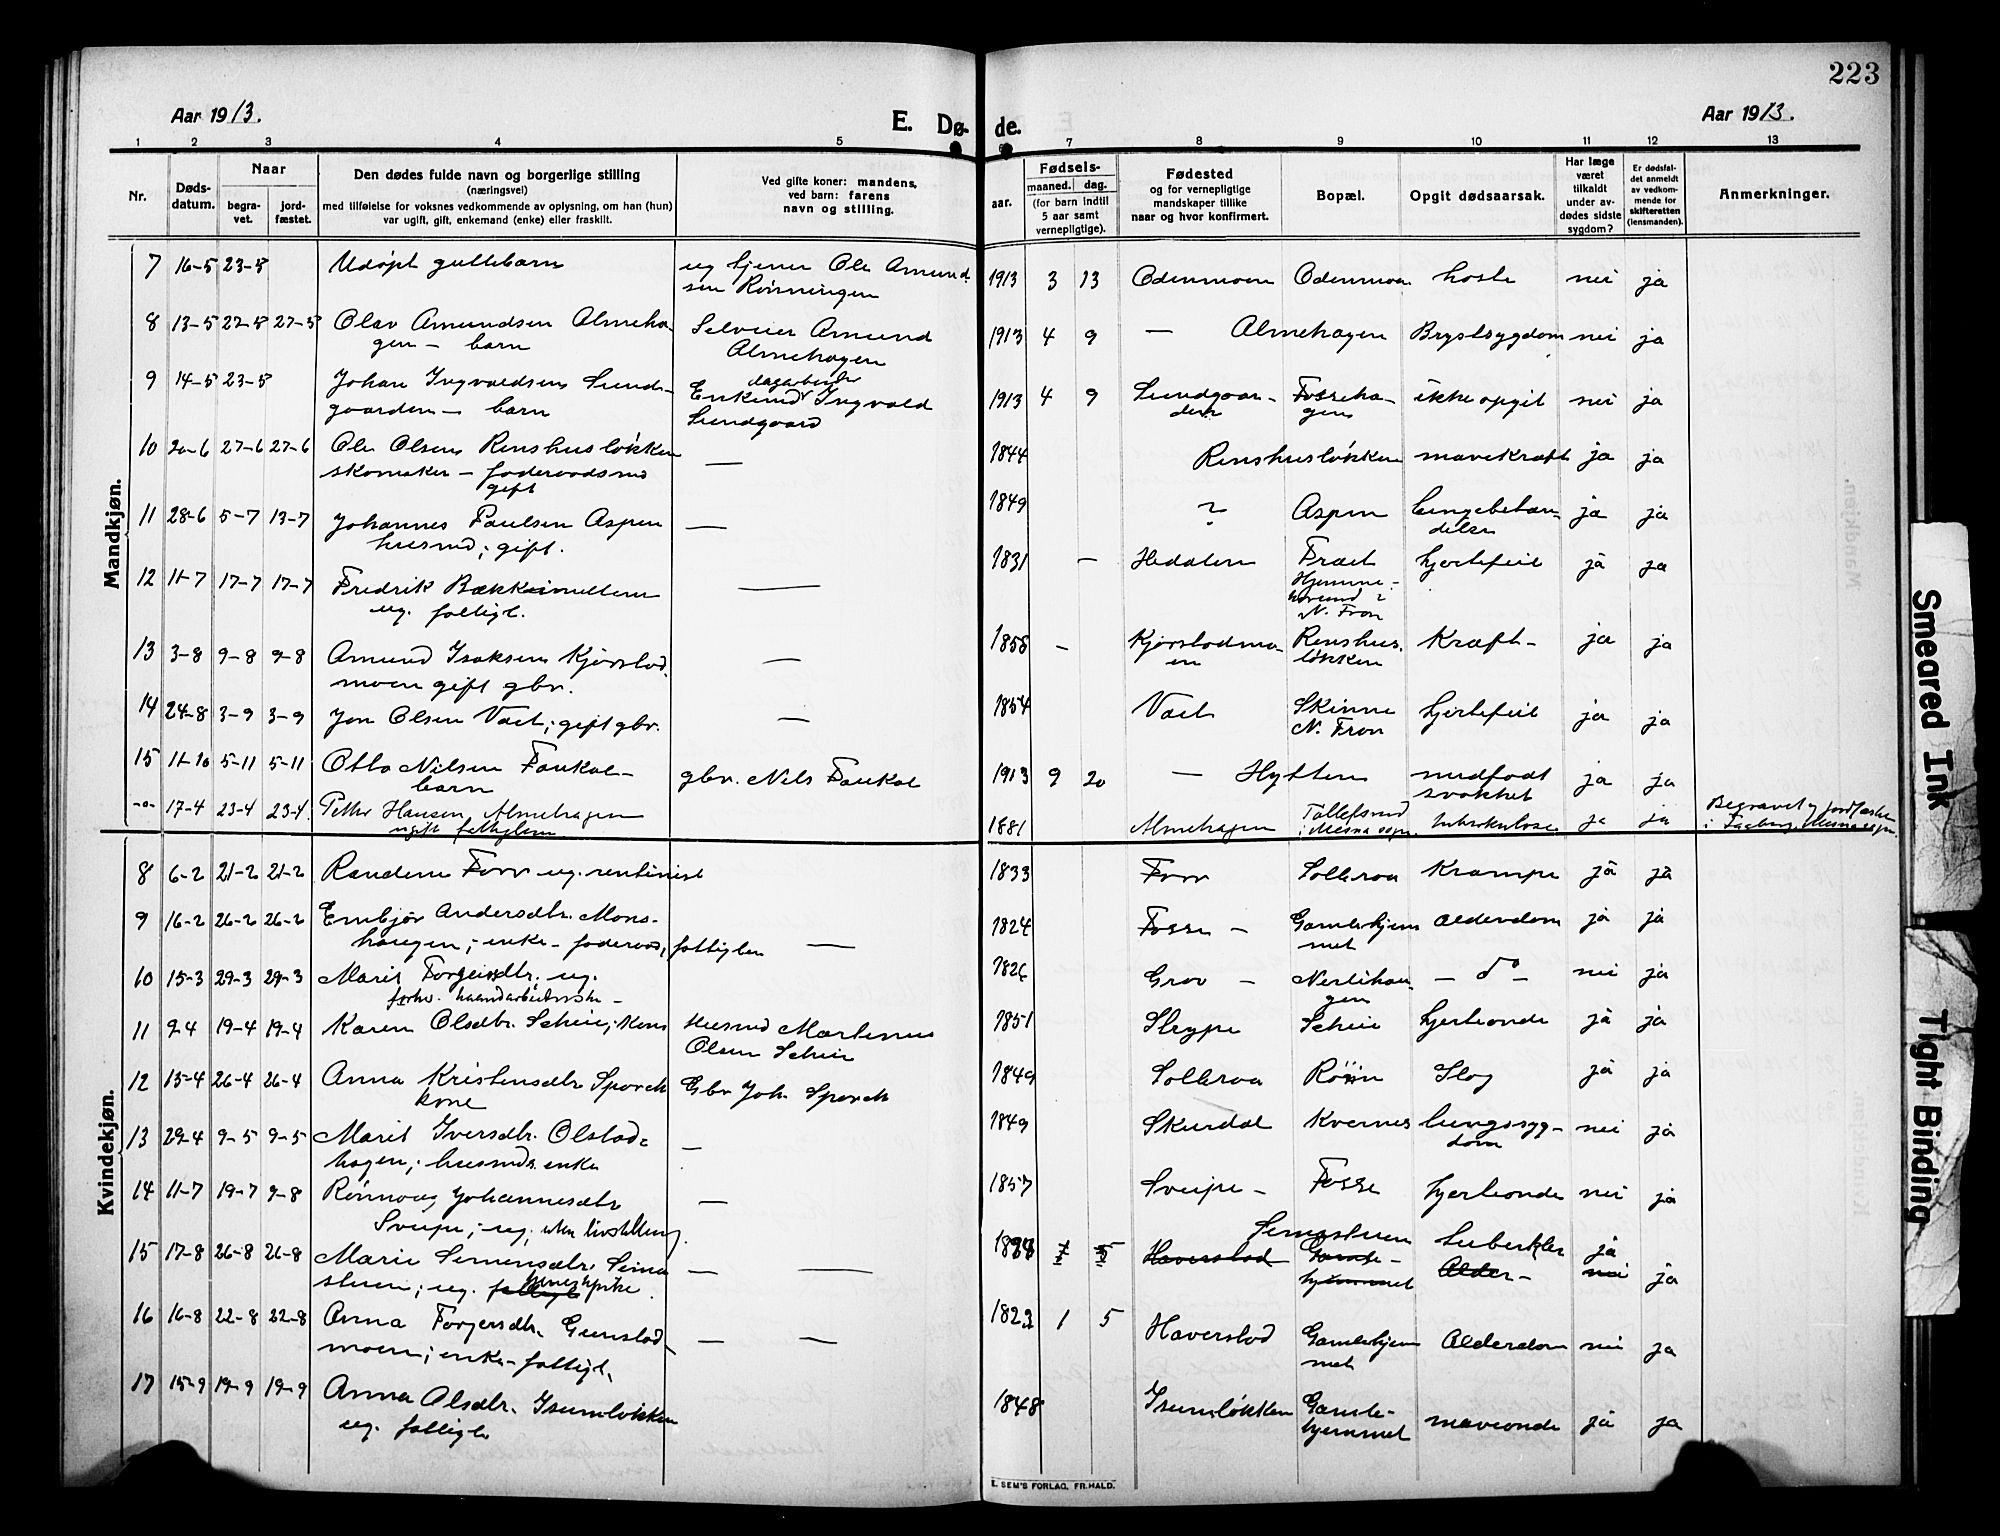 223
Aar 1913.
E. Dø-
de.
Aar 1913.
1 2 3 4 5 6 7 8 9 10 11 12 13
Nr.
Døds-
datum.
Naar
begra-
vet.
jord-
fæstet.
Den dødes fulde navn og borgerlige stilling
(næringsvei)
med tilføielse for voksnes vedkommende av oplysning, om han (hun)
var ugift, gift, enkemand (enke) eller fraskilt.
Ved gifte koner: mandens,
ved barn: farens
navn og stilling.
Fødsels-
aar.
maaned. dag.
(for barn indtil
5 aar samt
vernepligtige).
Fødested
og for vernepligtige
mandskaper tillike
naar og hvor konfirmert.
Bopæl.
Opgit dødsaarsak.
Har læge
været
tilkaldt
under av-
dødes sidste
sygdom?
Er dødsfal-
det anmeldt
av vedkom-
mende for
skifteretten
(lensmanden).
Anmerkninger.
Mandkjøn.
7 16-5 23-5 Udøpt guttebarn ug tjener Ole Amund-
sen Rønningen 1913 3 13 Odenmoen Odenmoen hoste nei ja
8 13-5 27-5 27-5 Olav Amundsen Almeha-
gen - barn Selveier Amund
Almehagen 1913 4 9 — Almehagen Brystsygdom nei ja
9 14-5 23-5 Johan Ingvaldsen Sund-
gaarden - barn dagarbeider
Enkemd Ingvald
Sundgaard 1913 4 9 Sundgaar-
den Fosseha-
gen ikke opgit nei ja
10 20-6 27-6 27-6 Ole Olsen Renshusløkken
skomaker - foderaadsmd
gift — 1844 Renshusløkken mavekræft ja ja
11 28-6 5-7 13-7 Johannes Paulsen Aspen
husmd; gift. — 1849 ? Aspen Lungebetæn-
delse ja ja
12 11-7 17-7 17-7 Fredrik Bækkemellem
ug. fattigl. — 1831 - Hedalen Fræt
Hjemme-
hørend i
N. Fron hjertefeil ja ja
13 3-8 9-8 9-8 Amund Isaksen Kjørstad-
moen gift gbr. — 1858 - Kjørstadmo-
en Renshus-
løkken Kræft - ja ja
14 24-8 3-9 3-9 Jon Olsen Vaet; gift gbr. — 1854 Vaet Skinne
N. Fron hjertefeil ja ja
15 11-10 5-11 5-11 Otto Nilsen Faukal-
barn gbr. Nils Faukal 1913 9 20 — Hytten medfødt
svakhet ja ja
-"- 17-4 23-4 23-4. Petter Hansen Almehagen
ugift fattiglem 1881 Almehagen Tollefsrud
i Mesna sogn tuberkulose ja ja Begravet og jordfæstet
i Faaberg, Mesna sogn.
Kvindekjøn.
8 6-2 21-2 21-2 Randine Forr ug. rentenist 1833 Forr Solbraa Krampe ja ja
9 16-2 26-2 26-2 Embjør Andersdtr. Mons-
haugen; enke - foderaad, fattiglem — 1824 Fosse - Gamlehjem
met Alderdom ja ja
10 15-3 29-3 29-3 Marit Torgeirsdtr. ug.
forhv. haandarbeiderske - 1826 Grov - Nerlihau-
gen - do - nei ja
11 9-4 19-4 19-4 Karen Olsdtr. Scheie; kone Husmd Martinus
Olsen Scheie 1851 Sleype Scheie hjerteonde ja ja
12 15-4 26-4 26-4 Anna Kristensdtr Sporck
kone Gbr Joh. Sporck 1849 Solbraa Røiin Slag ja ja
13 29-4 9-5 9-5 Marit Iversdtr. Olstad-
hagen; husmds. enke — 1849 Skurdal Kvernes lungesyg-
dom nei ja
14 11-7 19-7 9-8 Rønnaug Johannesdtr
Sveipe; ug; uten livstilling. — 1857 Sveipe - Fosse hjerteonde nei ja
15 17-8 26-8 26-8 Marie Simensdtr. Seima
stuen; ug. fattigl tjenestepike. — — 1894 5 Haverstad Semastuen
Gamle-
hjemmet Tuberkler
Alder - ja
nei ja
16 16-8 22-8 22-8 Anna Torgersdtr. Gunstad-
moen; enke - fattigl. — — 1823 1 5 Haverstad Gamlehjem
met Alderdom nei ja
17 15-9 19-9 19-9 Anna Olsdtr. Isumløkken
ug. fattigl. 1848 Isumløkken Gamle-
hjemmet maveonde ja ja
E. SEM'S FORLAG, FR.HALD.
Smeared Ink
Tight Binding